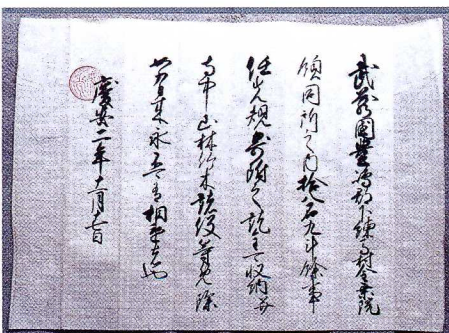 武蔵國豊嶋郡下練馬村金乗院
領同所之内拾八石九斗餘事
任先規寄附之訖全可収納并
寺中山林竹木諸役等免除
如有来永不可有相違者也
慶安二年十一月十七日